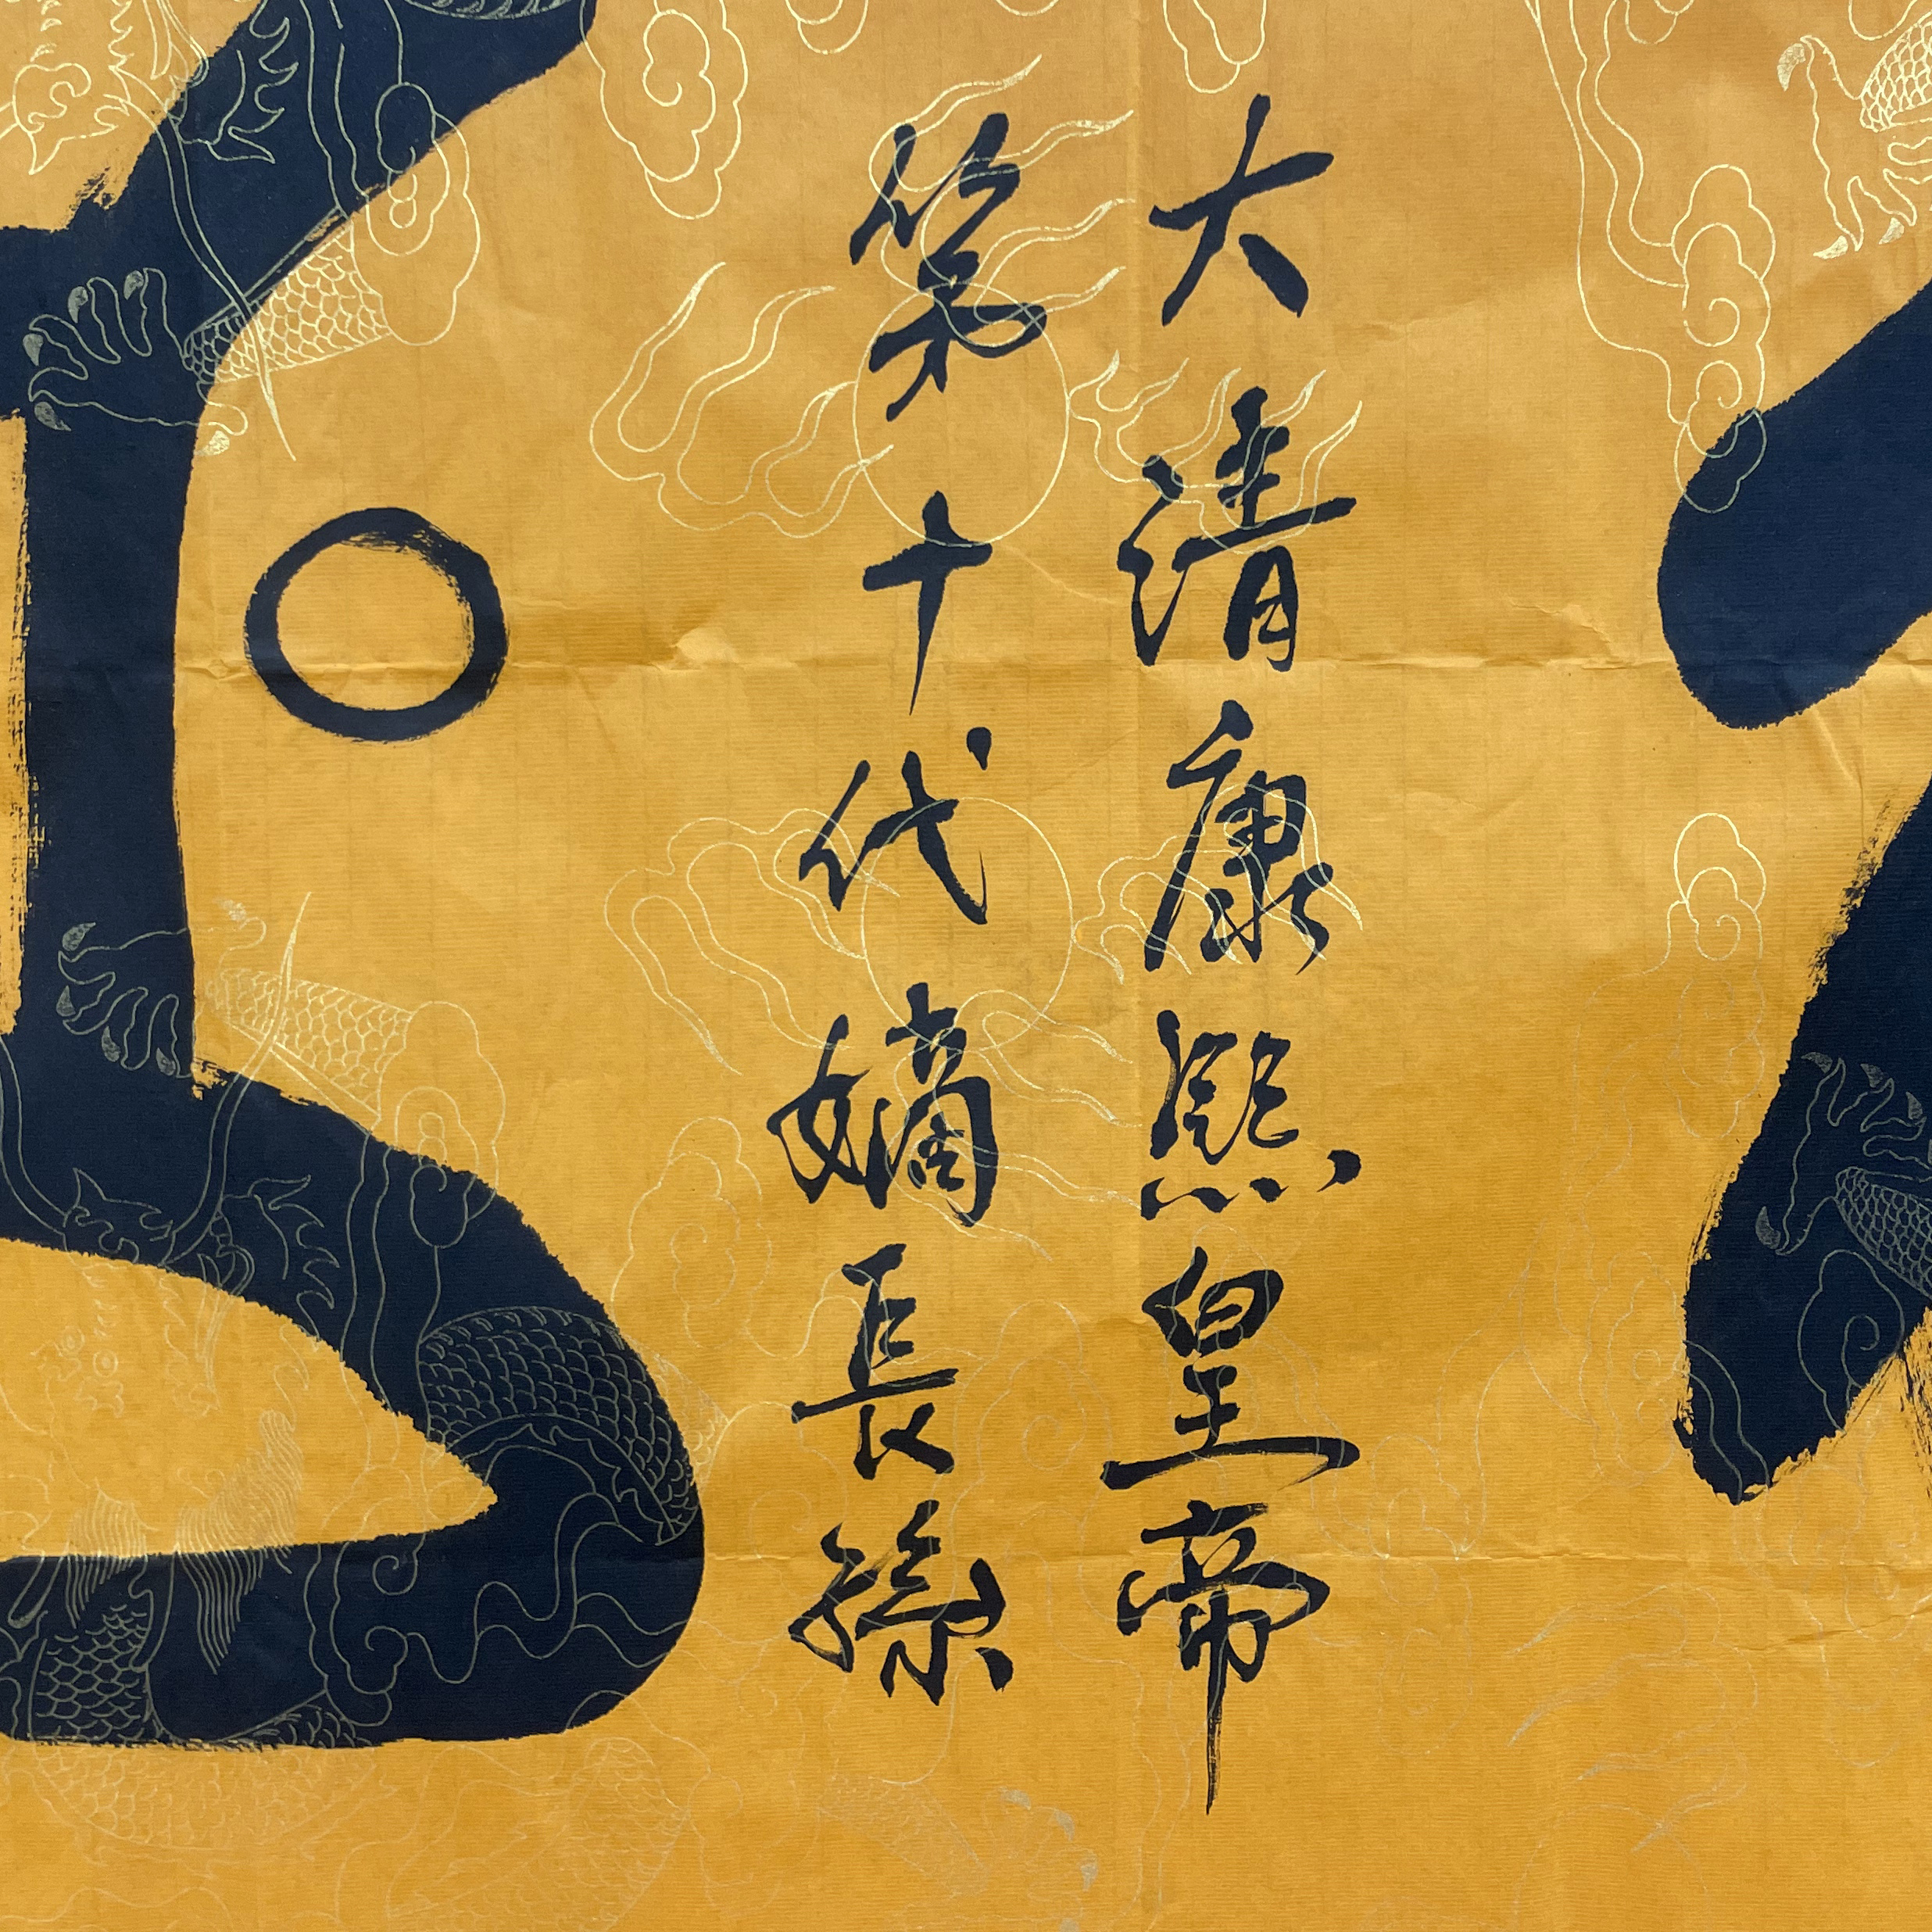 大清康熙皇帝
第十代嫡長孫